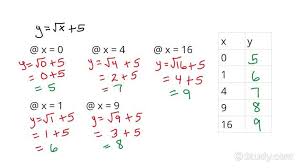 y=√x+5
@ x = 0
y=√0+5
= 0+5
= 5
@ x = 4
y=√4 +5
= 2+5
= 7
@ x = 16
y=√16+5
= 4+5
= 9
@ x = 1
y=√1+5
= 1+5
= 6
@ x = 9
y=√9+5
= 3+5
= 8
x y
0 5
1 6
4 7
9 8
16 9
© Study.com